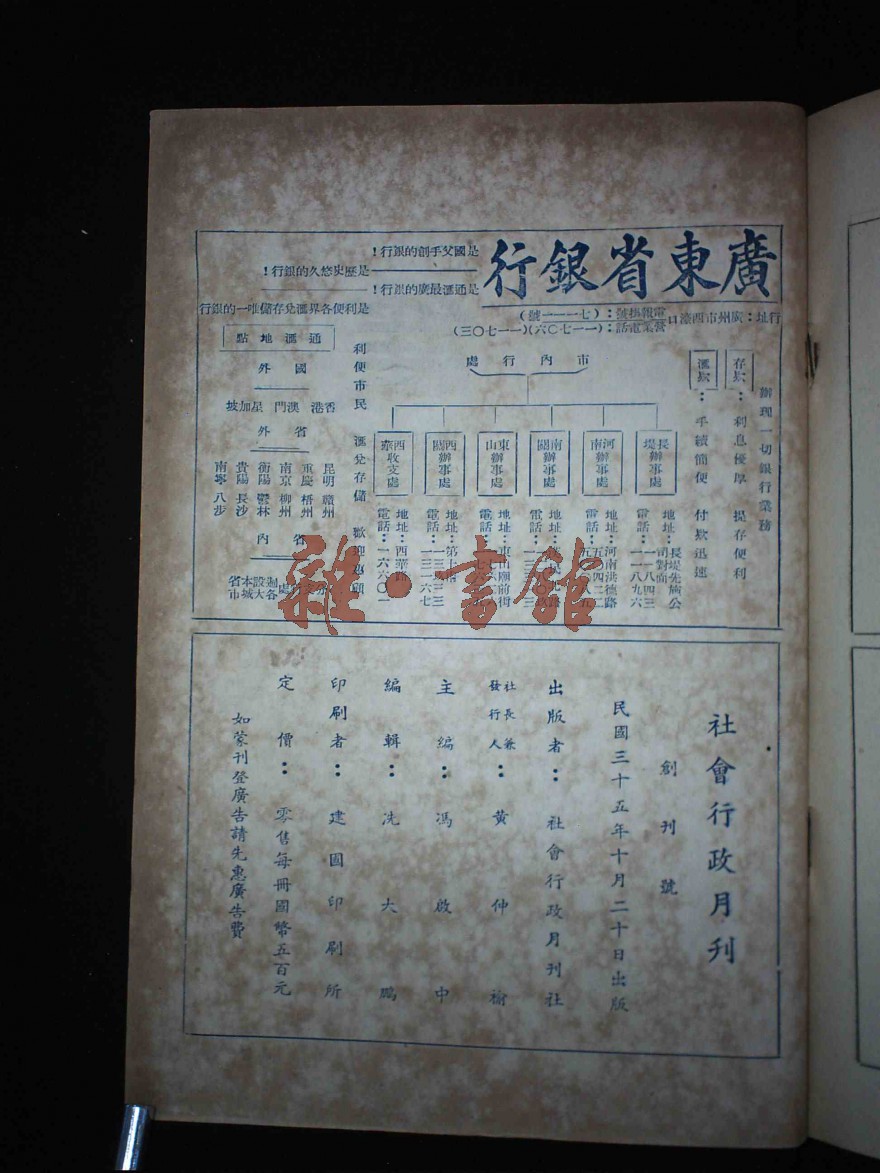 廣東省銀行
是國父手創的銀行！
是歷史悠久的銀行！
是通滙最廣的銀行！
是利便各界滙兌存儲唯一的銀行
行址：廣州市西濠口
電報掛號：（七一一一號）
營業電話：（一一七〇六）（一一七〇三）
辦理一切銀行業務
存欵：利息優厚　提存便利
滙欵：手續簡便　付欵迅速
市內行處
長堤辦事處
地址：長堤先施公司對面
電話：一一八四三
一一八九六
河南辦事處
地址：河南洪德路
電話：五〇四二二
五〇八五二
南關辦事處
東山辦事處
地址：東山廟前街
西關辦事處
地址：第十
電話：一三一三三
一三一六七
西華收支處
地址：西華路
電話：一六六〇
利便市民　滙兌存儲　歡迎惠顧
通滙地點
國外
香港　澳門　星加坡
省外
昆明　贛州
重慶　梧州
南京　柳州
衡陽　鬱林
貴陽　長沙
南寧　八步
省內
設大
本城
省市
雜·書館
社會行政月刊
創刊號
民國三十五年十月二十日出版
出版者：社會行政月刊社
社長兼發行人：黄仲褕
主編：馮啟中
編輯：冼大鵬
印刷者：建國印刷所
定價：零售每冊國幣五百元
如蒙刊登廣告請先惠廣告費